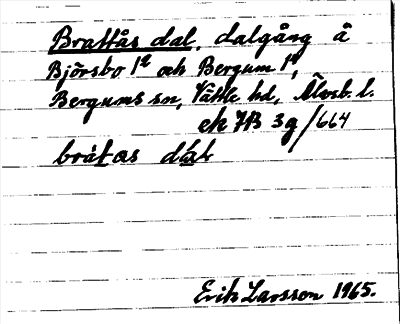 Brattås dal, dalgång å
Björsbo 1² och Bergum 1⁹,
Bergums sn, Vättle hd, Älvsb. l.
ek 7B 3g/664
bråt as dal
Erik Larsson 1965.